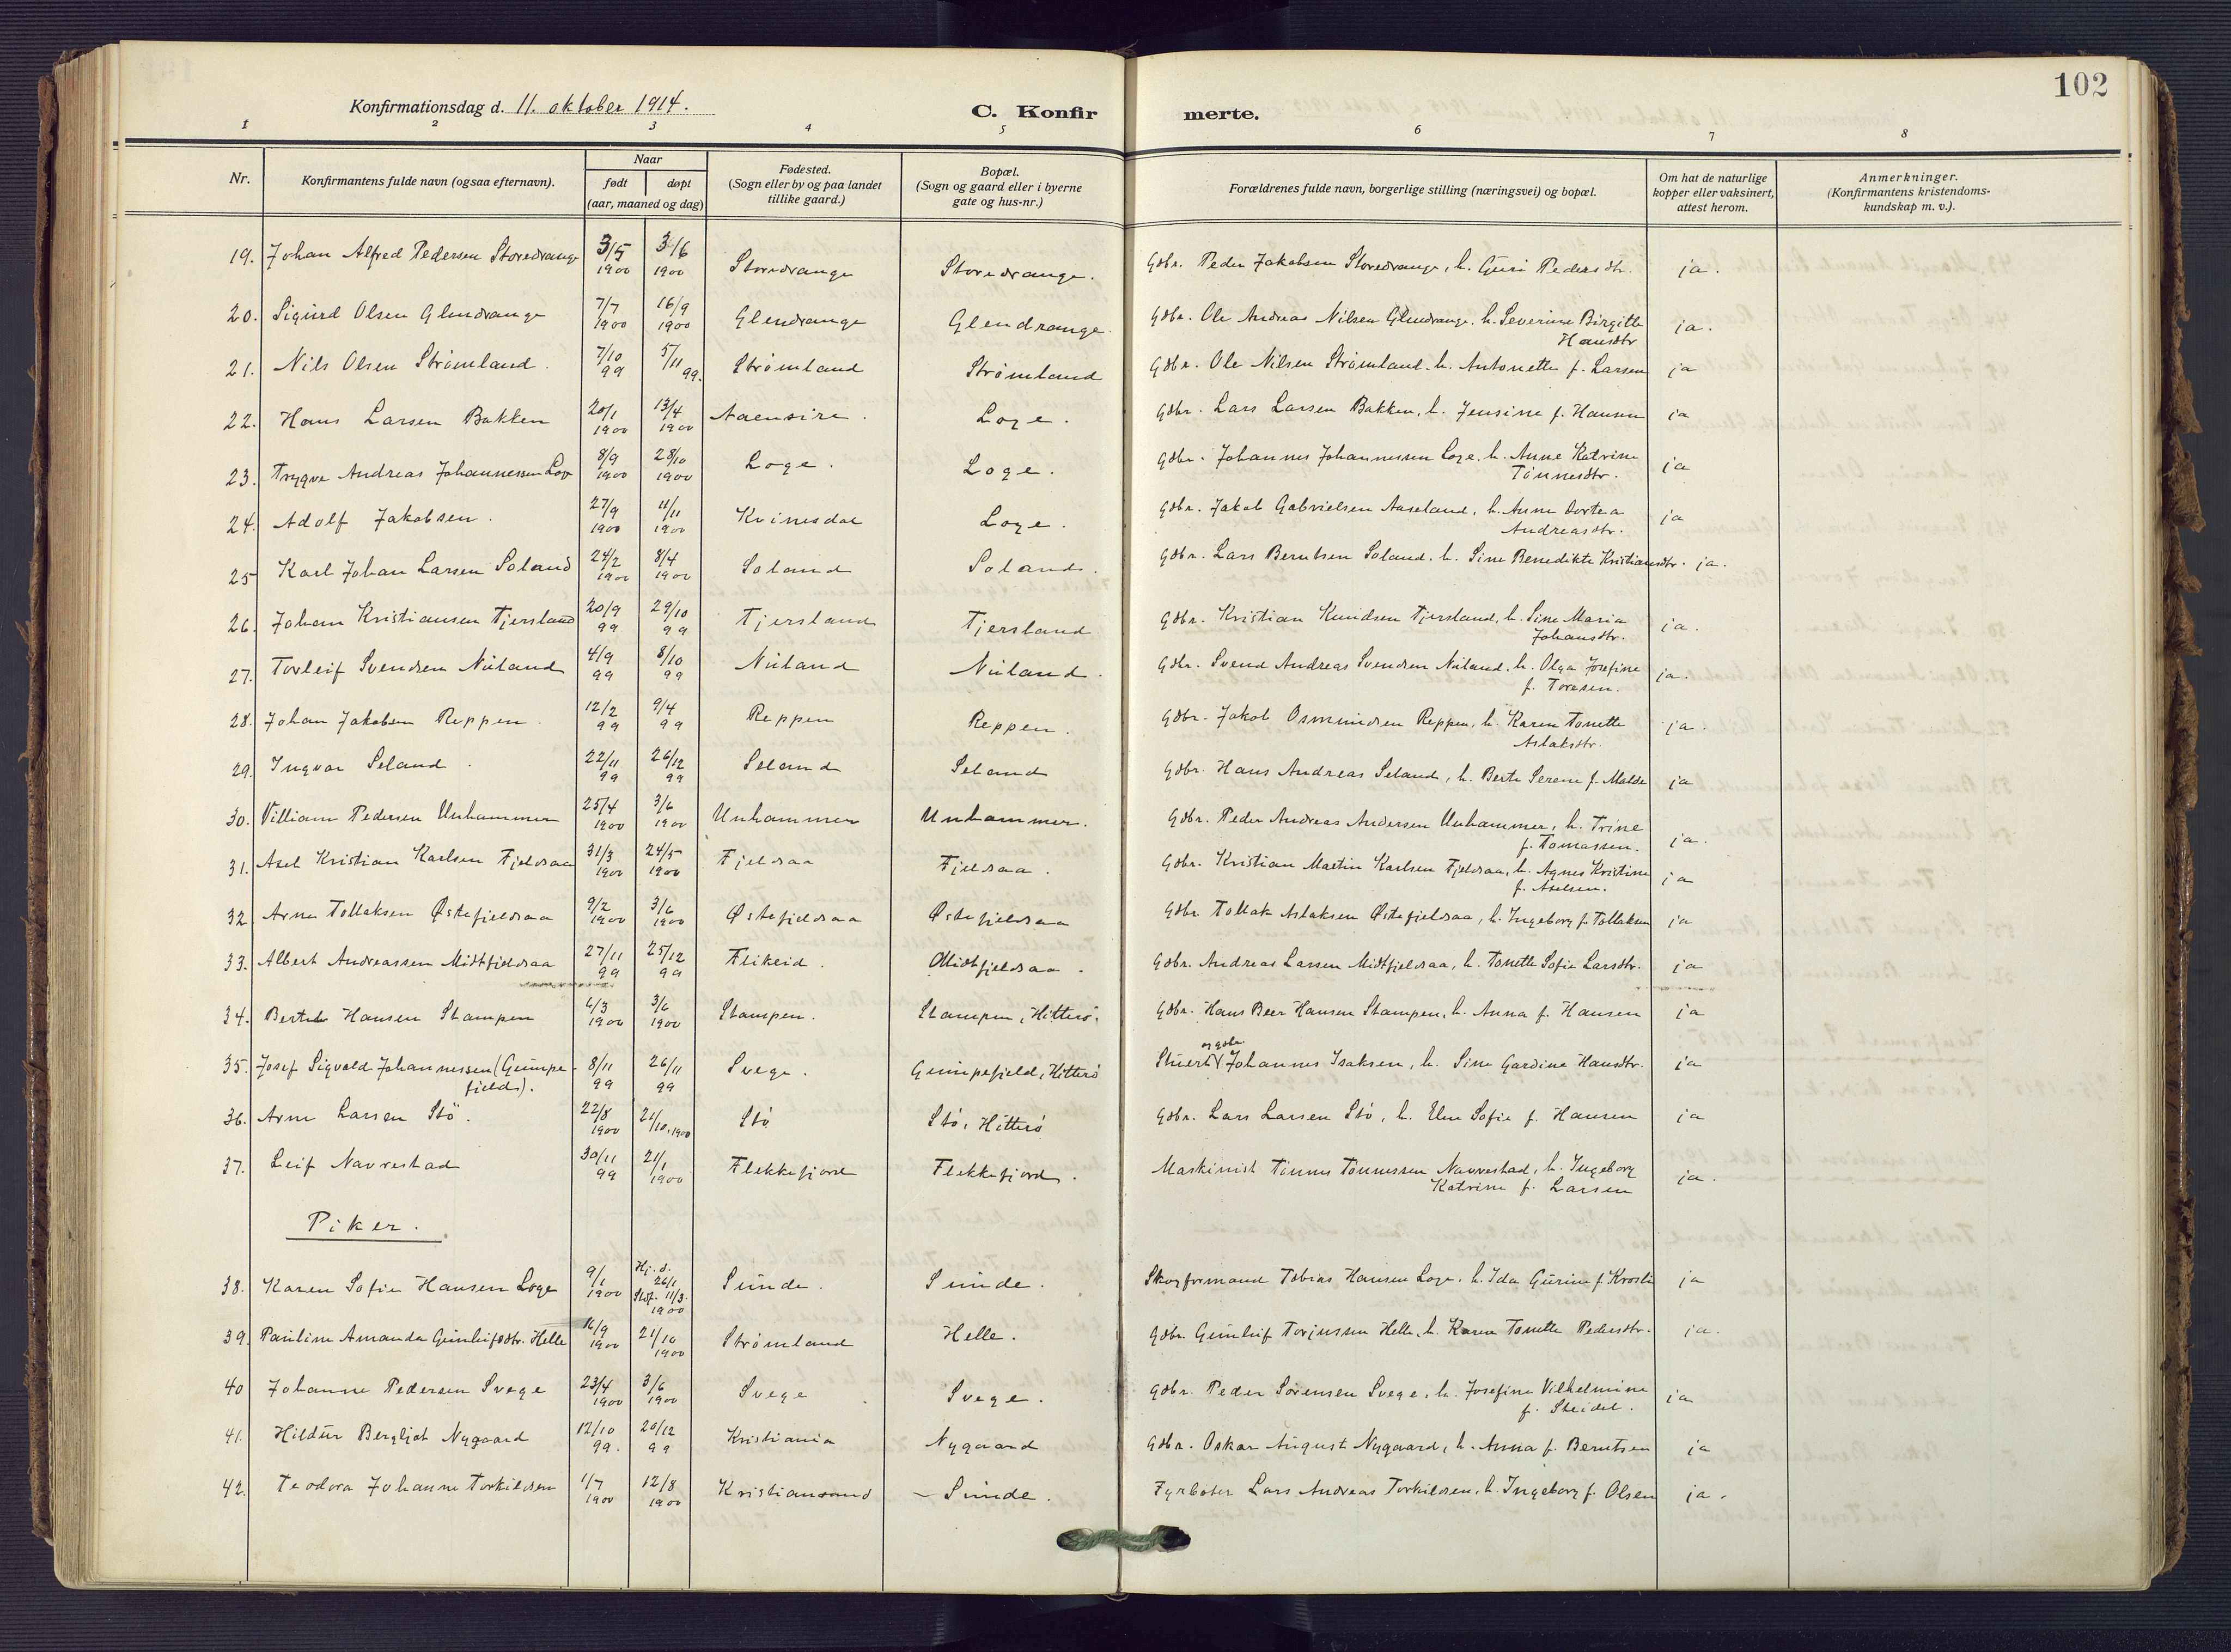 102
Konfirmationsdag d. 11. oktober 1914.
C. Konfir merte.
1 2 3 4 5 6 7 8
Nr.
Konfirmantens fulde navn (ogsaa efternavn).
Naar
født døpt
(aar, maaned og dag)
Fødested.
(Sogn eller by og paa landet
tillike gaard.)
Bopæl.
(Sogn og gaard eller i byerne
gate og hus-nr.)
Forældrenes fulde navn, borgerlige stilling (næringsvei) og bopæl.
Om hat de naturlige
kopper eller vaksinert,
attest herom.
Anmerkninger.
(Konfirmantens kristendoms-
kundskap m. v.).
19. Johan Alfred Pedersen Storedrange 3/5 1900 3/6 1900 Storedrange Storedrange. Gdbr. Peder Jakobsen Storedrange, h. Guri Pedersdtr. ja.
20. Sigurd Olsen Glendrange 7/7 1900 16/9 1900 Glendrange Glendrange. Gdbr. Ole Andreas Nilsen Glendrange. h. Severine Birgitte
Hansdtr ja.
21. Nils Olsen Strømland. 7/10 99 5/11 99. Strømland Strømland Gdbr. Ole Nilsen Strømland. h. Antonette f. Larsen ja
22. Hans Larsen Bakken 20/1 1900 13/4 1900 Aaensire. Loge. Gdbr. Lars Larsen Bakken, h. Jensine f. Hansen ja
23. Trygve Andreas Johannessen Loge 8/9 1900 28/10 1900 Loge. Loge. Gdbr. Johannes Johannessen Loge. h. Anne Katrine
Tønnesdtr. ja
24. Adolf Jakobsen. 27/9 1900 11/11 1900 Kvinesdal Loge. Gdbr. Jakob Gabrielsen Aaseland, h. Anne Dortea
Andreasdtr. ja
25 Karl Johan Larsen Soland 24/2 1900 8/4 1900 Soland Soland. Gdbr. Lars Berntsen Soland. h. Sine Benedikte Kristiansdtr. ja.
26. Johan Kristiansen Tjersland 20/9 99 29/10 99 Tjersland Tjersland Gdbr. Kristian Knudsen Tjersland, h. Sine Maria
Johansdtr. ja.
27. Torleif Svendsen Nuland 4/9 99 8/10 99 Nuland Nuland. Gdbr. Svend Andreas Svendsen Nuland, h. Olga Josefine
f. Toresen. ja.
28. Johan Jakobsen Reppen. 12/2 99 9/4 99 Reppen Reppen. Gdbr. Jakob Osmundsen Reppen, h. Karen Tonette
Aslaksdtr. ja.
29. Ingvar Seland. 22/11 99 26/12 99 Seland Seland Gdbr. Hans Andreas Seland, h. Berte Serene f. Malde ja
30. Villiam Pedersen Unhammer 25/4 1900 3/6 1900 Unhammer Unhammer. Gdbr. Peder Andreas Andersen Unhammer, h. Trine
f. Tomassen. ja.
31. Axel Kristian Karlsen Fjeldsaa 31/3 1900 24/5 1900 Fjeldsaa Fjeldsaa. Gdbr. Kristian Martin Karlsen Fjeldsaa, h. Agnes Kristine
f. Axelsen. ja
32. Arne Tollaksen Østefjeldsaa 9/2 1900 3/6 1900 Østefjeldsaa Østefjeldsaa Gdbr. Tollak Aslaksen Østefjeldsaa, h. Ingeborg f. Tollaksen ja
33. Albert Andreassen Midtfjeldsaa 27/11 99 25/12 99 Flikeid. Midtfjeldsaa. Gdbr. Andreas Larsen Midtfjeldsaa, h. Tonette Sofie Larsdtr. ja
34. Bertel Hansen Stampen 4/3 1900 3/6 1900 Stampen. Stampen, Hitterø. Gdbr. Hans Beer Hansen Stampen, h. Anna f. Hansen ja
35. Josef Sigvald Johannessen (Gumpe-
fjeld). 8/11 99 26/11 99 Svege. Gumpefjeld, Hitterø Stuert og gdbr. Johannes Isaksen, h. Sine Gardine Hansdtr. ja
36. Arne Larsen Stø. 22/8 1900 21/10 1900 Stø Stø, Hitterø Gdbr. Lars Larsen Stø, h. Elen Sofie f. Hansen ja
37. Leif Navrestad 30/11 99 21/1 1900 Flekkefjord Flekkefjord. Maskinist Tønnes Tønnessen Navrestad, h. Ingeborg
Katrine f. Larsen ja.
Piker.
38. Karen Sofie Hansen Loge 9/1 1900 Hj. d. 26/1 Stf. 11/3. 1900 Sunde. Sunde. Skogformand Tobias Hansen Loge, h. Ida Gurine f. Krosli ja
39. Pauline Amanda Gunleifsdtr. Helle 16/9 1900 21/10 1900 Strømland Helle. Gdbr. Gunleif Torjussen Helle, h. Karen Tonette Pedersdtr. ja.
40 Johanne Pedersen Svege 23/4 1900 3/6 1900 Svege Svege. Gdbr. Peder Sørensen Svege, h. Josefine Vilhelmine
f. Steidel. ja
41. Hildur Bergljot Nygaard 12/10 99. 20/12 99 Kristiania Nygaard Gdbr. Oskar August Nygaard, h. Anna f. Berntsen ja
42. Teodora Johanne Torkildsen 1/7 1900 12/8 1900 Kristiansand – Sunde. Fyrbøter Lars Andreas Torkildsen, h. Ingeborg f. Olsen ja.